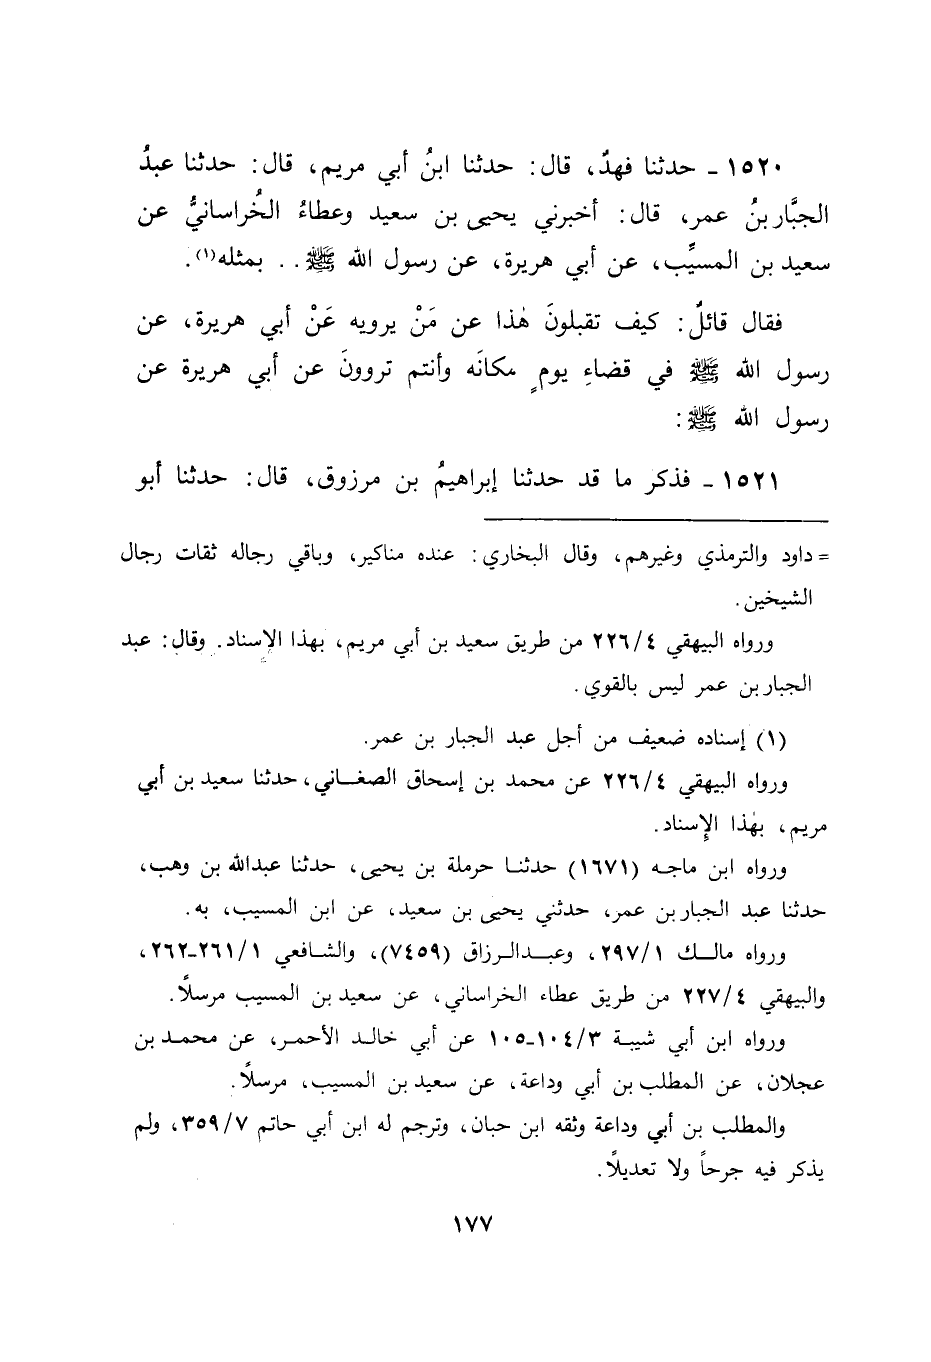 ١٥٢٠ ـ حدثنا فهدٌ، قال: حدثنا ابنُ أبي مريم، قال: حدثنا عبدُ
الجبَّار بنُ عمر، قال: أخبرني يحيى بن سعيد وعطاءُ الخُراسانيُّ عن
سعيد بن المسيِّب، عن أبي هريرة، عن رسول الله ﷺ .. بمثله(١).
فقال قائلٌ: كيف تقبلونَ هٰذا عن مَنْ يرويه عَنْ أبي هريرة، عن
رسول الله ﷺ في قضاءِ يومٍ مكانَه وأنتم تروونَ عن أبي هريرة عن
رسول الله ﷺ:
١٥٢١ ـ فذكر ما قد حدثنا إبراهيمُ بن مرزوق، قال: حدثنا أبو
= داود والترمذي وغيرهم، وقال البخاري: عنده مناكير، وباقي رجاله ثقات رجال
الشيخين.
ورواه البيهقي ٢٢٦/٤ من طريق سعيد بن أبي مريم، بهذا الإسناد. وقال: عبد
الجبار بن عمر ليس بالقوي.
(١) إسناده ضعيف من أجل عبد الجبار بن عمر.
ورواه البيهقي ٢٢٦/٤ عن محمد بن إسحاق الصغاني، حدثنا سعيد بن أبي
مريم، بهٰذا الإِسناد.
ورواه ابن ماجه (١٦٧١) حدثنا حرملة بن يحيى، حدثنا عبدالله بن وهب،
حدثنا عبد الجبار بن عمر، حدثني يحيى بن سعيد، عن ابن المسيب، به.
ورواه مالك ٢٩٧/١، وعبدالرزاق (٧٤٥٩)، والشافعي ٢٦١/١-٢٦٢،
والبيهقي ٢٢٧/٤ من طريق عطاء الخراساني، عن سعيد بن المسيب مرسلاً.
ورواه ابن أبي شيبة ١٠٤/٣-١٠٥ عن أبي خالد الأحمر، عن محمد بن
عجلان، عن المطلب بن أبي وداعة، عن سعيد بن المسيب، مرسلاً.
والمطلب بن أبي وداعة وثقه ابن حبان، وترجم له ابن أبي حاتم ٣٥٩/٧، ولم
يذكر فيه جرحاً ولا تعديلاً.
١٧٧